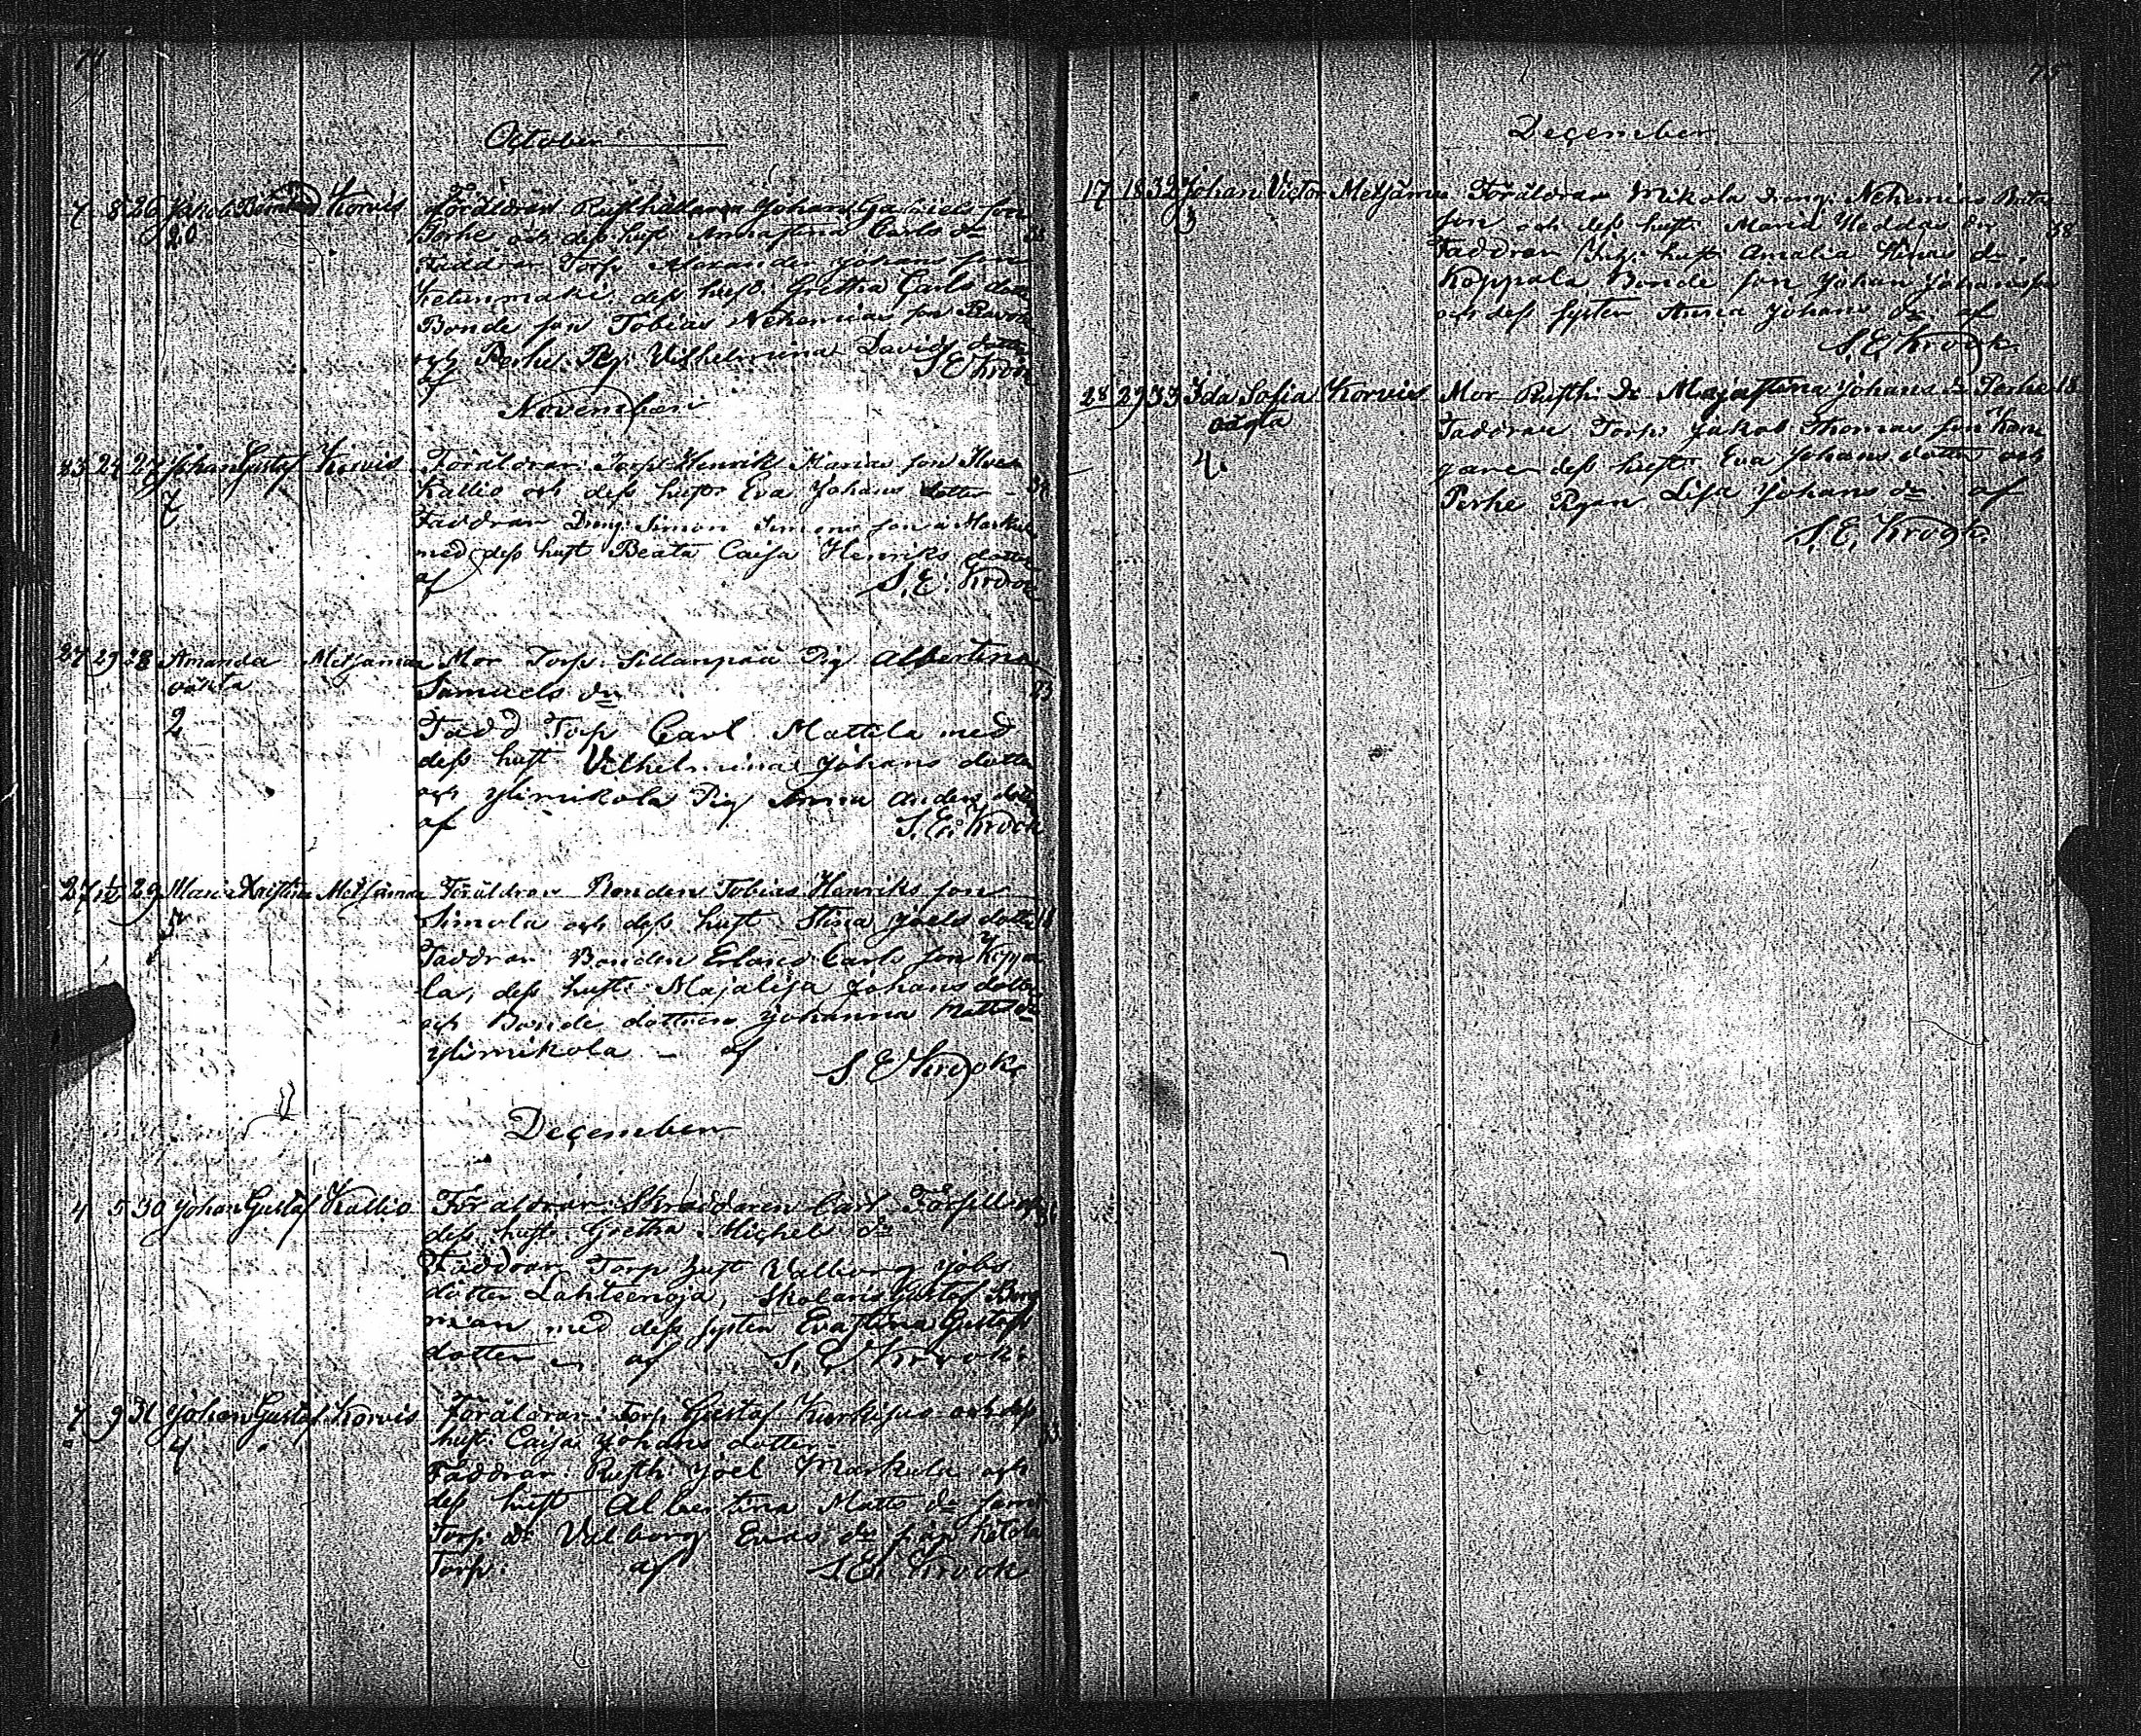 74
October
7 8 26 Jakob Korvis Föräldrar Rusthållaren Johan son
20 Perhe och dess hust. Annastina Carls dr
Faddrar Torp. Alexander Johans son
Ketunmäki dess hust. Gretha Carls dotter
Bonde son Tobias Nehemias son
och Perhe Pig. Vilhelmina Davids dotter
af S E Krook
November
23 24 27 Johan Gustaf Korvis Föräldrar: Torp. Henrik Marias son
7 Kallio och dess hustr. Eva Johans dotter
Faddrar Dreng. Simon Simons son
med dess hust Beata Caisa Henriks dotter
af S. E. Krook
27 29 28 Amanda Metsämaa Mor Torp. Sillanpää Pig Albertina
oäkta Samuels dr
2 Fadd Torp Carl Mattila med
dess hust Vilhelmina Johans dotter
och Ylimikola Pig Anna Anders dotter
af S. E. Krook
27 1/12 29 Maria Kristina Metsämaa Föräldrar Bonden Tobias Henriks son
5 Simola och dess hust Stina Joels dotter
Faddrar Bonden Erland Carls son Koppa
la, dess hust. Majalisa Johans dotter
och Bonde dottren Johanna Matts dr
Ylimikola - af
S E Krook
December
4 5 30 Johan Gustaf Kallio Föräldrar: Skräddaren Carl
dess hust. Gretha Michels dr
Faddrar Torp hust Valborg Jobs
dotter Lähteenoja, Gustaf Berg
man med dess syster Evastina Gustafs
dotter af S. E. Krook
7 9 31 Johan Gustaf Korvis Föräldrar: Torp. Gustaf och dess
4 hust. Caisa Johans dotter
Faddrar: Rusth. Joel Markula och
dess hust Albertina Matts dr samt
Torp. dr Valborg Evas dr från Ketola
Torp: af S. E. Krook
75
December
17 18 32 Johan Victor Metsämaa Föräldrar Mikola Dreng. Nehemias
3 son och dess hust. Maria Heddas dr 38
Faddrar hust Amalia dr.
Koppala Bonde son Johan Johansson
och dess syster Anna Johans dr af
S. E. Krook
28 29 33 Ida Sofia Korvis Mor Rusth. dr Majastina Johans dr Perhe 18
oägta Faddrar Torp. Jakob Thomas son
4 dess hust. Eva Johans dotter och
Perhe Pigan Lisa Johans dr af
S. E. Krook